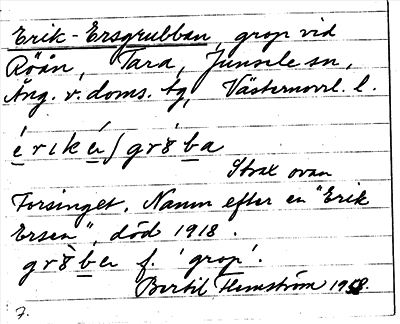 Erik-Ersgrubban, grop vid
Röån, Tara, Junsele sn,
Ång. v. doms. tg, Västernorrl. l.
érikérʃgrŏ́ba
Strax ovan
Forsinget. Namn efter en "Erik
Ersen", död 1918.
grŏ̀ber f. 'grop'.
Bertil Flemström 1958.
7.